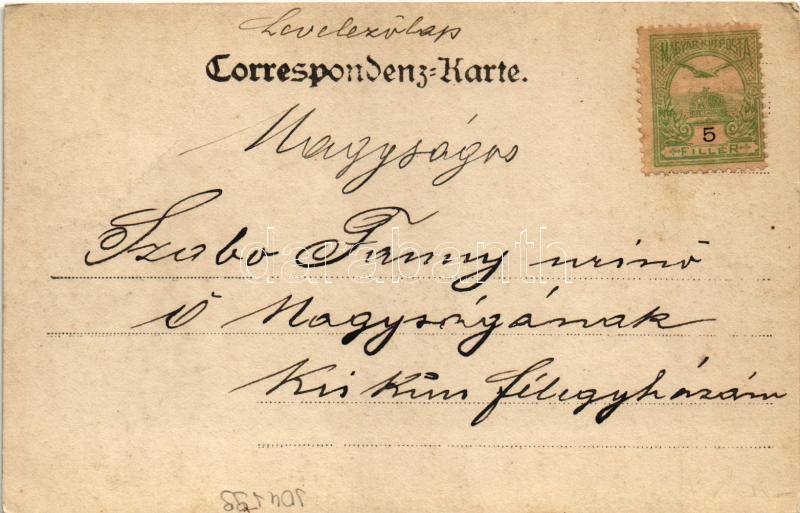 Levelezőlap
Correspondenz-Karte.
MAGYAR KIR. POSTA
5
FILLÉR
Nagyságos
Szabo Fanny urinő
Ő Nagyságának
Kis Kun félegyházán
darabanth.com
104198